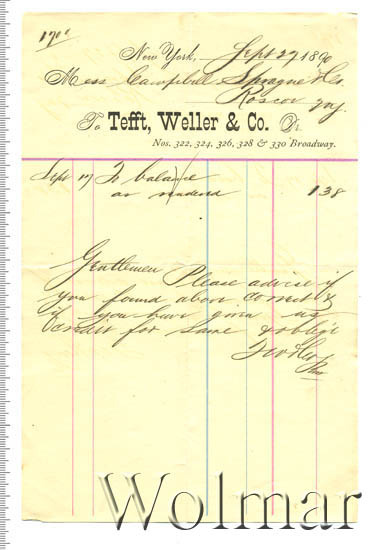 New York, Sept 27 1890
Mess Campbell Sprague & Co.
Roscoe NY.
To Tefft, Weller & Co. Dr.
Nos. 322, 324, 326, 328 & 330 Broadway.
Sept 17 To balance
as rendered 1 38
Gentlemen Please advise if
you found above correct &
if you have given us
credit for same & oblige
Wolmar